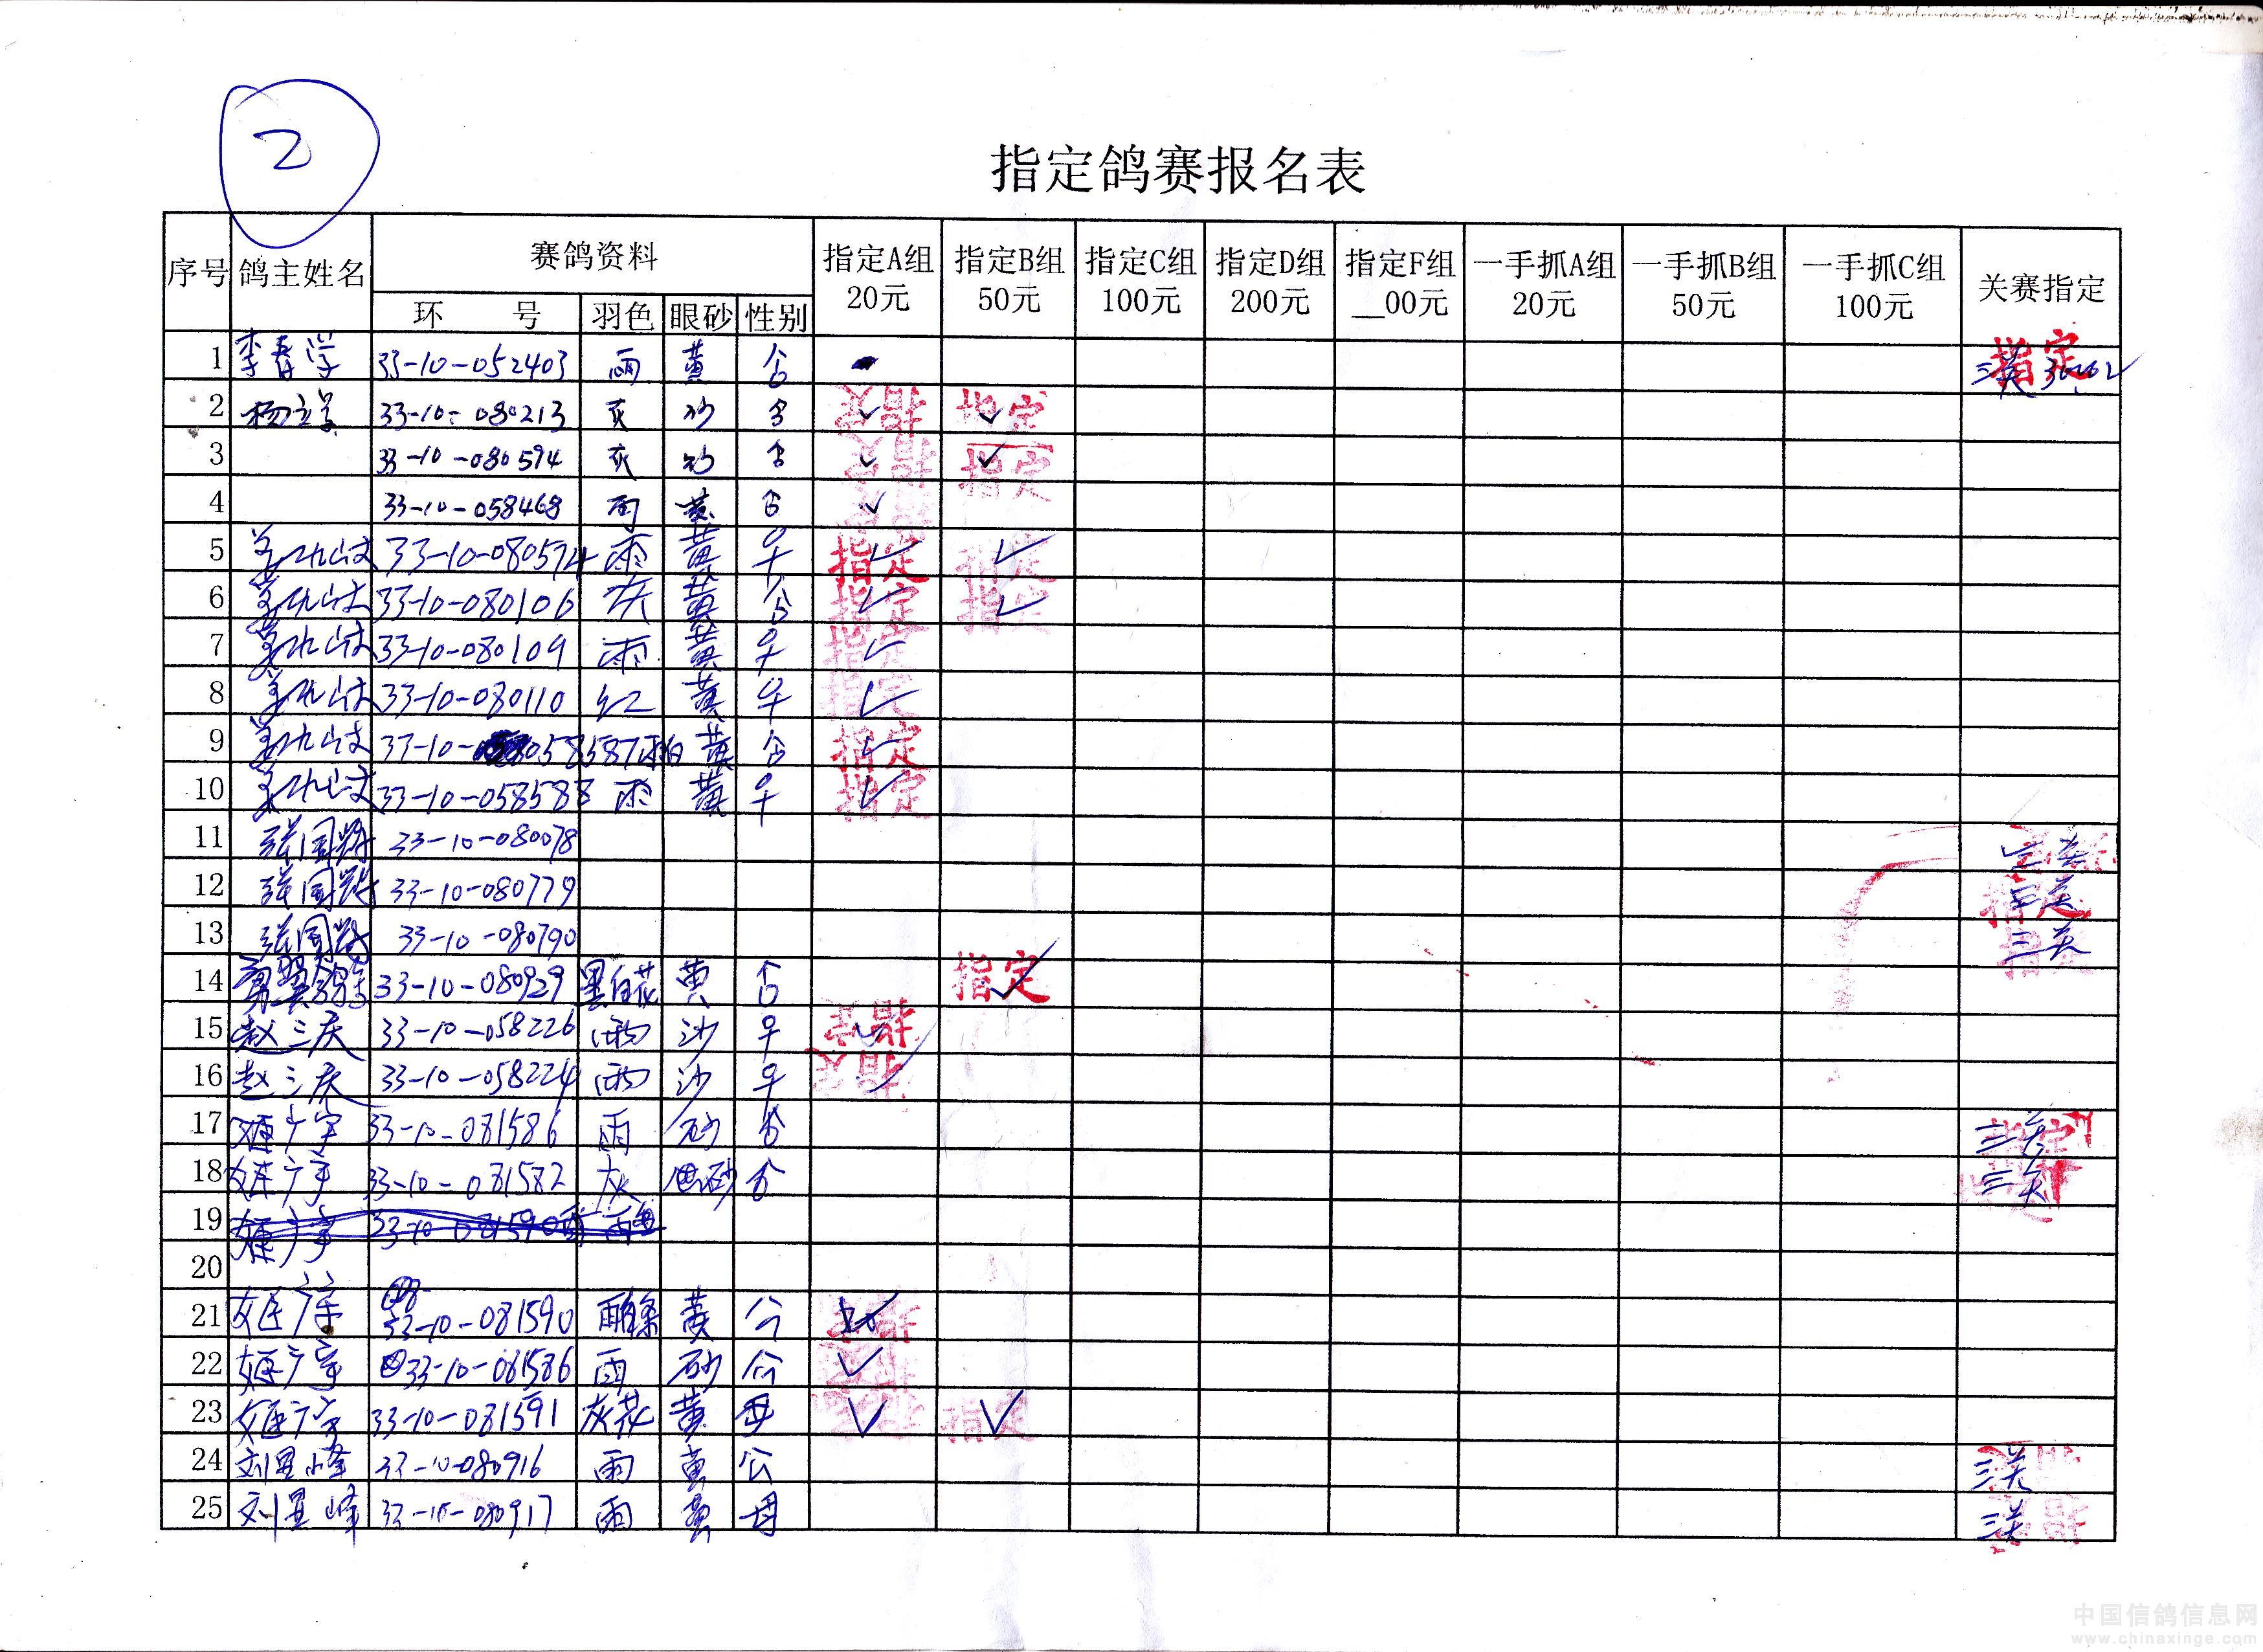 2
指定鸽赛报名表
序号 鸽主姓名 赛鸽资料 指定A组 20元 指定B组 50元 指定C组 100元 指定D组 200元 指定F组 __00元 一手抓A组 20元 一手抓B组 50元 一手抓C组 100元 关赛指定
环 号 羽色 眼砂 性别
1 李春学 33-10-052403 雨 黄 指定 三关
2 杨立学 33-10-080213 灰 砂 指定 ✓ 指定 ✓
3 33-10-080594 灰 砂 指定 ✓ 指定 ✓
4 33-10-058468 雨 黄 ✓
5 33-10-080574 雨 黄 ♀ 指定 ✓ 指定 ✓
6 33-10-080106 灰 黄 指定 ✓ 指定 ✓
7 33-10-080109 雨 黄 ♀ 指定 ✓
8 33-10-080110 红 黄 ♀ 指定 ✓
9 33-10-058587 雨白 黄 指定 ✓
10 33-10-058588 雨 黄 ♀ 指定 ✓
11 张国辉 33-10-080078 三关
12 张国辉 33-10-080779 指定 三关
13 张国辉 33-10-080790 指定 三关
14 33-10-080929 黑白花 黄 指定 ✓
15 赵三庆 33-10-058226 雨 沙 ♀ 指定 ✓
16 赵三庆 33-10-058224 雨 沙 ♀ 指定 ✓
17 姬广宇 33-10-081586 雨 砂 指定 三关
18 姬广宇 33-10-081582 灰 砂 指定 三关
19 姬广宇 33-10-081590
20
21 姬广宇 33-10-081590 黄 公 指定 ✓
22 姬广宇 33-10-081586 雨 砂 公 指定 ✓
23 姬广宇 33-10-081591 灰花 黄 母 指定 ✓ 指定 ✓
24 刘显峰 33-10-080916 雨 黄 公 指定 三关
25 刘显峰 33-10-080917 雨 黄 母 指定 三关
中国信鸽信息网
www.chinaxinge.com